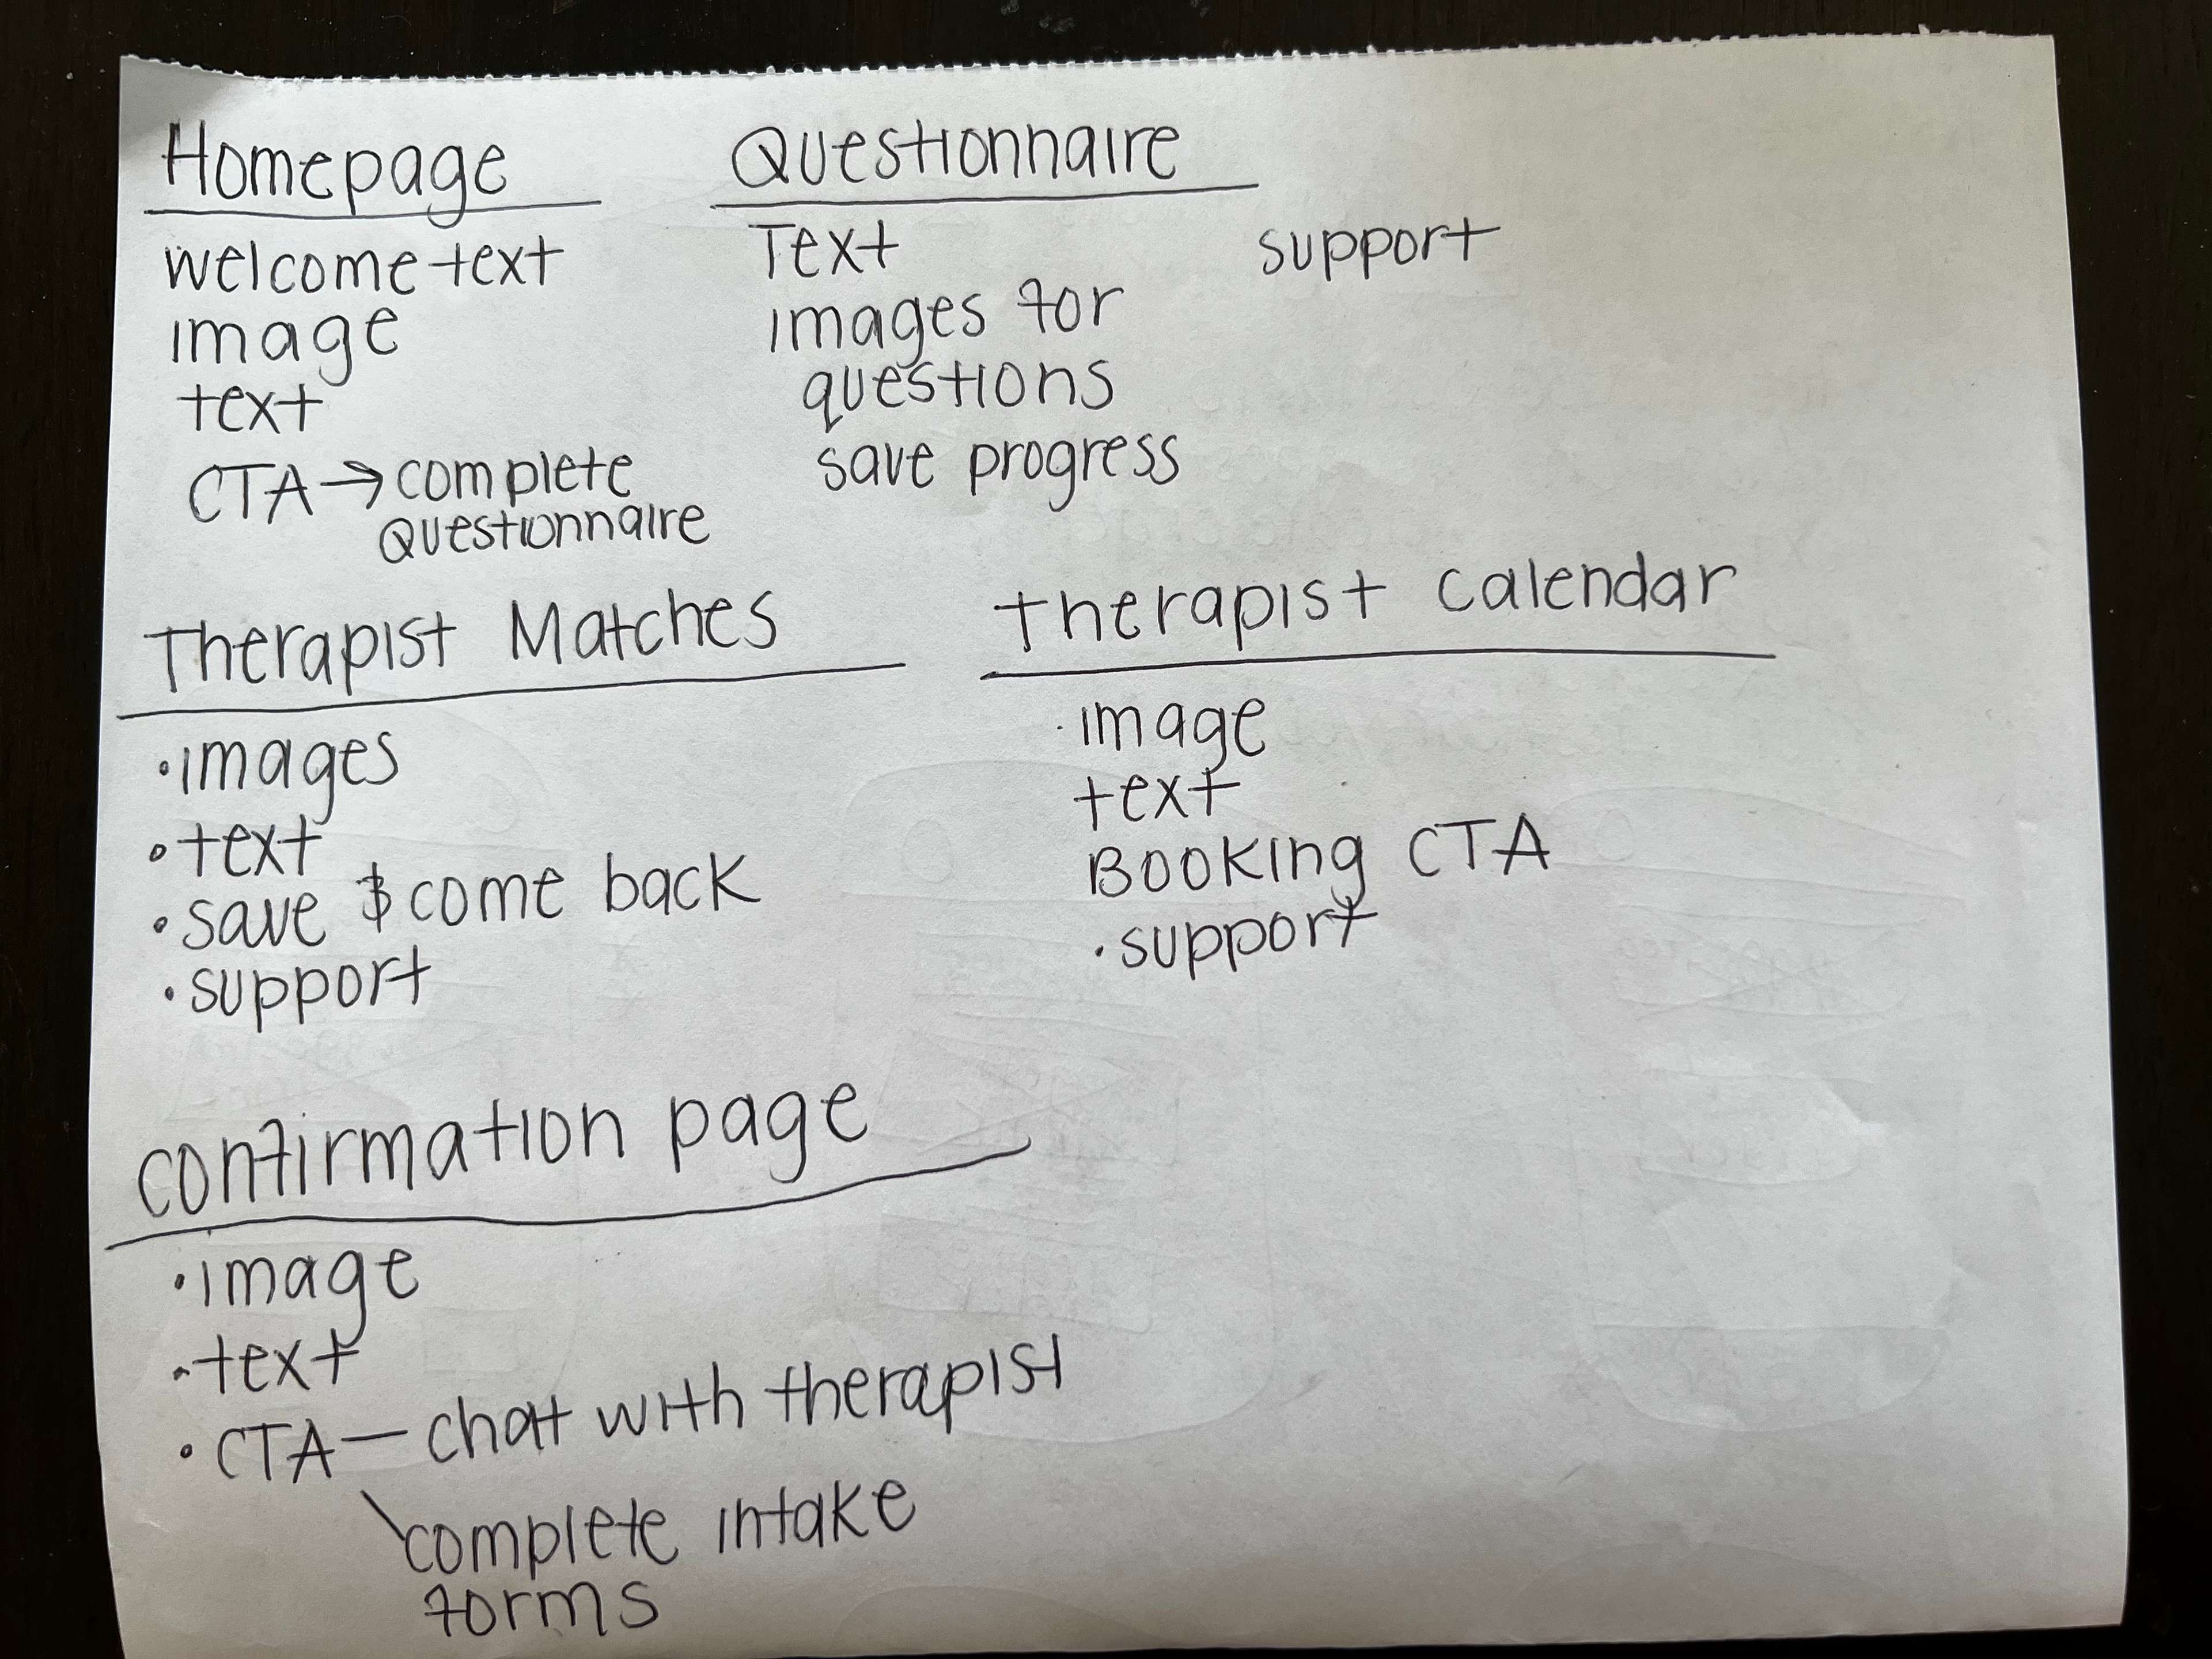 Homepage
welcome text
image
text
CTA → complete
Questionnaire
Questionnaire
Text
images for
questions
save progress
support
Therapist Matches
• images
• text
• save & come back
• support
therapist calendar
· image
text
Booking CTA
• support
confirmation page
• image
• text
• CTA — chat with therapist
\ complete intake
forms